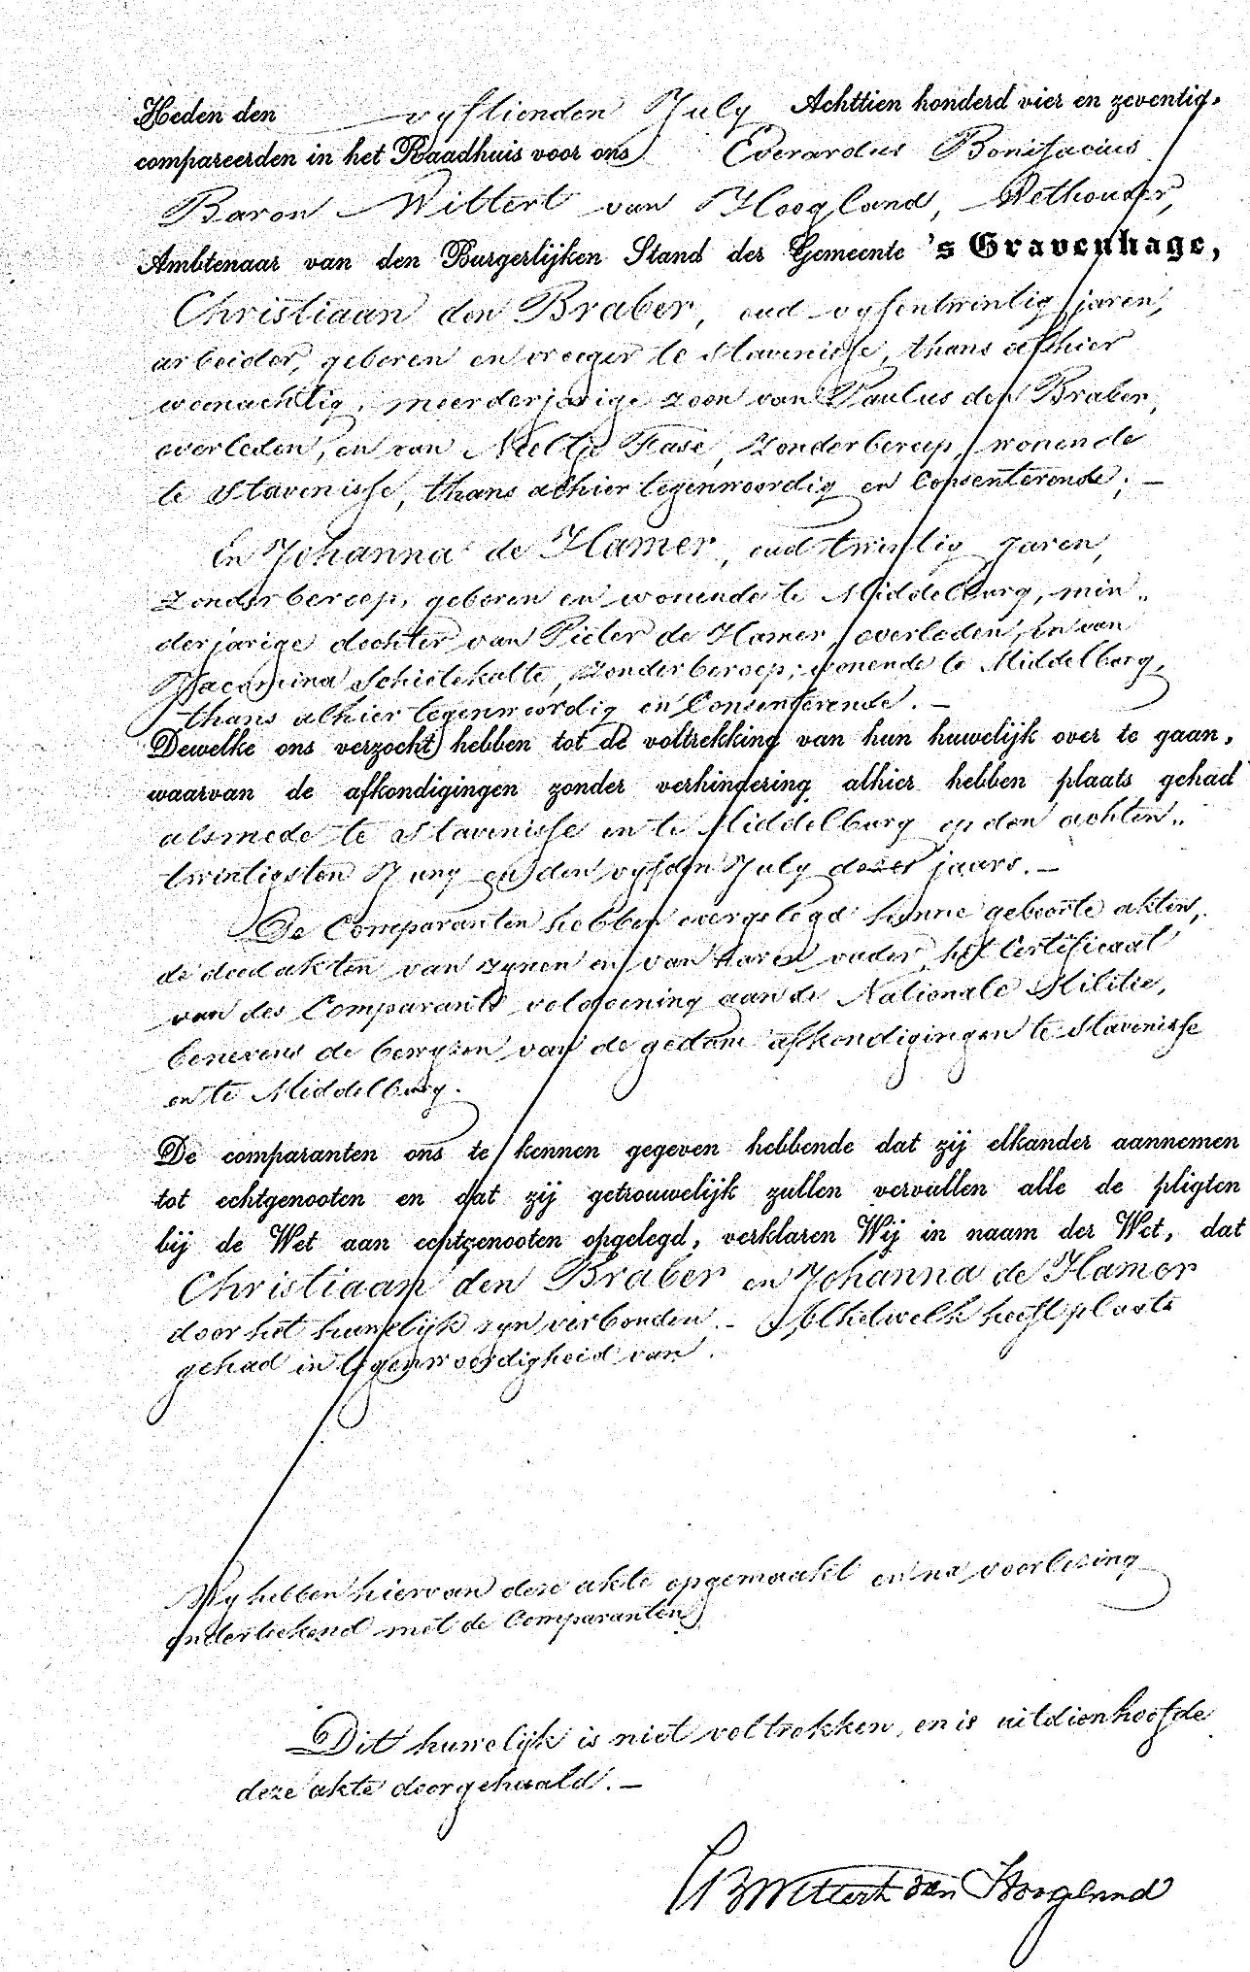 Heden den vyftienden July Achttien honderd vier en zeventig,
compareerden in het Raadhuis voor ons Everardus Bonifacius
Baron Wittert van Hoogland, Wethouder,
Ambtenaar van den Burgerlijken Stand der Gemeente 's Gravenhage,
Christiaan den Braber, oud vyfentwintig jaren,
arbeider, geboren en vroeger te Stavenisse, thans alhier
woonachtig, meerderjarige zoon van Paulus den Braber,
overleden, en van Neeltje Fase, zonder beroep, wonende
te Stavenisse, thans alhier tegenwoordig en Consenterende; —
En Johanna de Hamer, oud twintig jaren,
zonder beroep, geboren en wonende te Middelburg, min„
derjarige dochter van Pieter de Hamer, overleden, en van
Jacomina Schietekatte, zonder beroep, wonende te Middelburg,
thans alhier tegenwoordig en Consenterende. —
Dewelke ons verzocht hebben tot de voltrekking van hun huwelijk over te gaan,
waarvan de afkondigingen zonder verhindering alhier hebben plaats gehad
alsmede te Stavenisse en te Middelburg op den achten„
twintigsten Juny en den vyfden July dezes jaars. —
De Comparanten hebben overgelegd hunne geboorte akten,
de dood akten van zynen en van haren vader, het Certificaat
van des Comparants voldoening aan de Nationale Militie,
benevens de bewyzen van de gedane afkondigingen te Stavenisse
en te Middelburg.
De comparanten ons te kennen gegeven hebbende dat zij elkander aannemen
tot echtgenooten en dat zij getrouwelijk zullen vervullen alle de pligten
bij de Wet aan echtgenooten opgelegd, verklaren Wij in naam der Wet, dat
Christiaan den Braber en Johanna de Hamer
door het huwelijk zyn verbonden. — Al hetwelk heeft plaats
gehad in tegenwoordigheid van
Wy hebben hiervan deze akte opgemaakt en na voorlezing
onderteekend met de Comparanten
Dit huwelijk is niet voltrokken, en is uit dien hoofde
deze akte doorgehaald. —
EBWittert van Hoogland